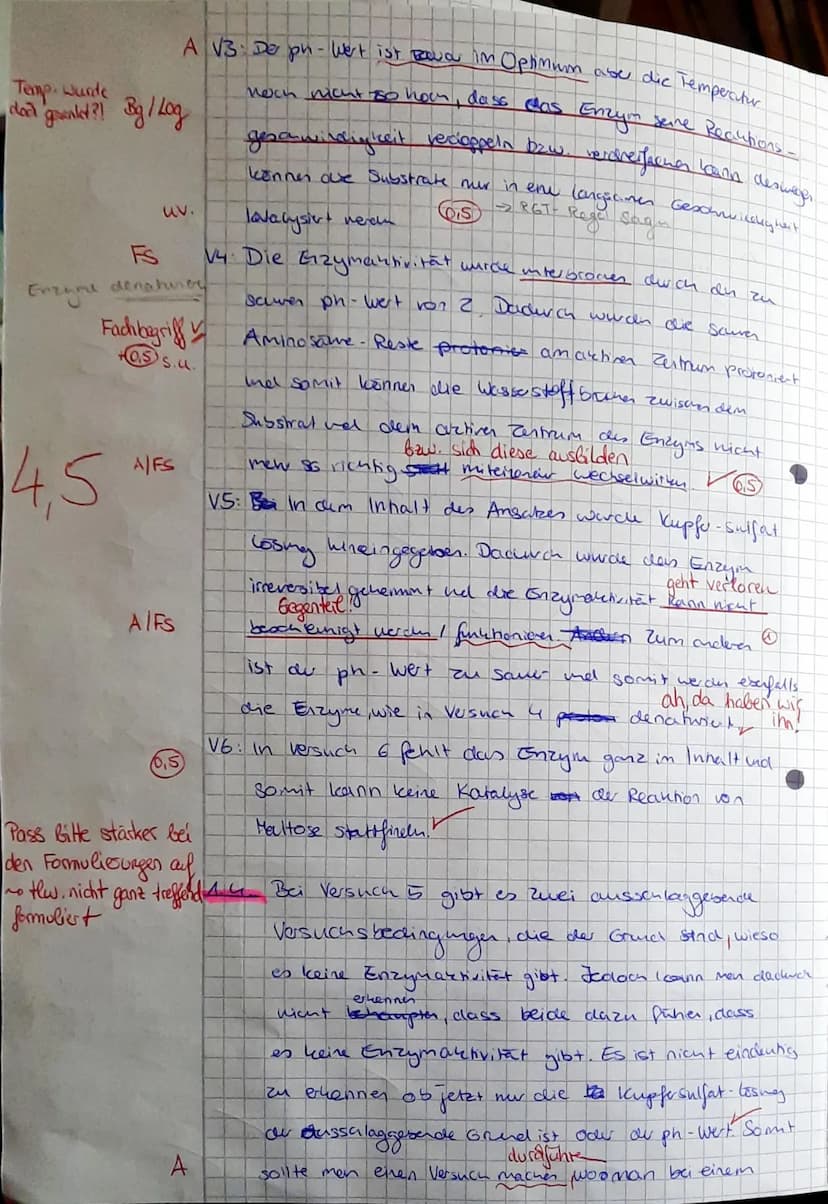 A V3: Der ph-Wert ist im Optimum aber die Temperatur
Temp. wurde
doch gesenkt?! Bg/Log
noch nicht so hoch, dass das Enzym seine Reaktions-
geschwindigkeit verdoppeln bzw. verdreifachen kann deswegen
können die Substrate nur in einer langsamen Geschwindigkeit
uv.
katalysiert werden 0,5 → RGT-Regel sagn
FS V4: Die Enzymaktivität wurde unterbrochen durch den zu
Enzyme denaturieren
sauren ph-Wert von 2. Dadurch wurden die sauren
Fachbegriff ✓
+0,5 s.u.
Aminosäure-Reste am aktiven Zentrum protoniert
und somit können die Wasserstoffbrücken zwischen dem
Substrat und dem aktiven Zentrum des Enzyms nicht
bzw. sich diese ausbilden
4,5
A/FS mehr so richtig miteinander wechselwirken ✓ 0,5
V5: In dem Inhalt des Ansatzes wurde Kupfer-sulfat
Lösung hineingegeben. Dadurch wurde das Enzym
geht verloren
irreversibel gehemmt und die Enzymaktivität kann nicht
Gegenteil!
A/FS beschleunigt werden / funktionieren. Zum anderen
ist der ph-Wert zu sauer und somit werden ebenfalls
ah, da haben wir
ihn!
die Enzyme, wie in Versuch 4 denaturiert ✓
V6: In Versuch 6 fehlt das Enzym ganz im Inhalt und
0,5
somit kann keine Katalyse der Reaktion von
Maltose stattfinden. ✓
Pass bitte stärker bei
den Formulierungen auf
→ tlw. nicht ganz treffend
formuliert
1.4. Bei Versuch 5 gibt es zwei ausschlaggebende
Versuchsbedingungen, die der Grund sind, wieso
es keine Enzymaktivität gibt. Jedoch kann man dadurch
erkennen
nicht behaupten, dass beide dazu führen, dass
es keine Enzymaktivität gibt. Es ist nicht eindeutig
zu erkennen ob jetzt nur die Kupfersulfat-Lösung
der ausschlaggebende Grund ist oder der ph-Wert. ✓ Somit
durchführen
A sollte man einen Versuch machen, wo man bei einem